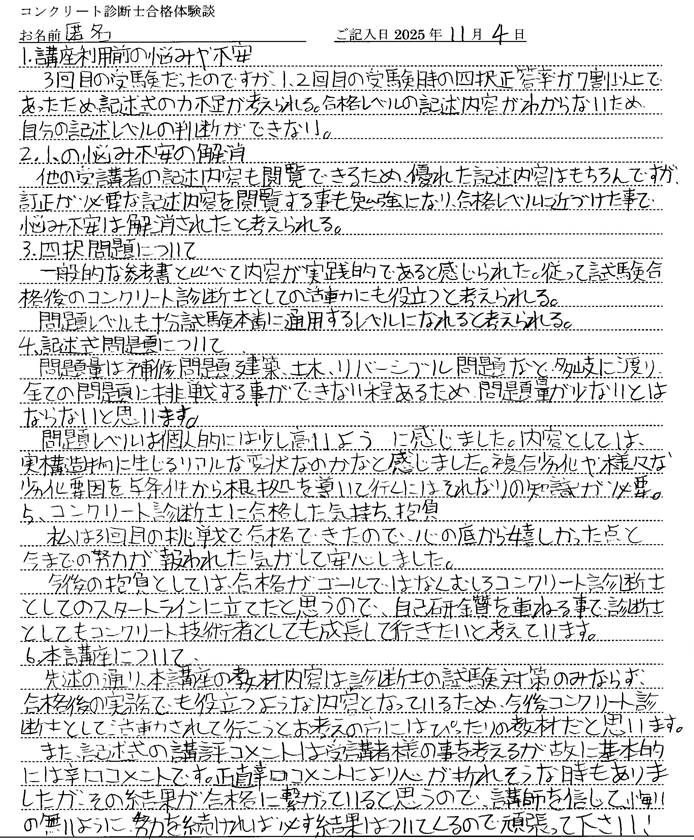 コンクリート診断士合格体験談
お名前 匿名 ご記入日 2025 年 11 月 4 日
1.講座利用前の悩みや不安
3回目の受験だったのですが、1、2回目の受験時の四択正答率が7割以上で
あったため記述式の力不足が考えられる。合格レベルの記述内容がわからないため
自分の記述レベルの判断ができない。
2.1.の悩み不安の解消
他の受講者の記述内容も閲覧できるため、優れた記述内容はもちろんですが、
訂正が必要な記述内容を閲覧する事も勉強になり、合格レベルに近づけた事で
悩み不安は解消されたと考えられる。
3.四択問題について
一般的な参考書と比べて内容が実践的であると感じられた。従って試験合
格後のコンクリート診断士としての活動にも役立つと考えられる。
問題レベルも十分試験本番に通用するレベルになれると考られる。
4.記述式問題について
問題量は補修問題、建築、土木、リバーシブル問題など、多岐に渡り
全ての問題に挑戦する事ができない程あるため、問題量が少ないとは
ならないと思います。
問題レベルは個人的には少し高いように感じました。内容としては、
実構造物に生じるリアルな変状なのかなと感じました。複合劣化や様々な
劣化要因を与条件から根拠を導いて行くにはそれなりの知識が必要。
5、コンクリート診断士に合格した気持ち、抱負
私は3回目の挑戦で合格できたので、心の底から嬉しかった点と
今までの努力が報われた気がして安心しました。
今後の抱負としては、合格がゴールではなくむしろコンクリート診断士
としてのスタートラインに立てたと思うので、自己研鑽を重ねる事で、診断士
としてもコンクリート技術者としても成長して行きたいと考えています。
6.本講座について、
先述の通り、本講座の教材内容は診断士の試験対策のみならず、
合格後の実務でも役立つような内容となっているため、今後コンクリート診
断士として活動されて行こうとお考えの方にはぴったりの教材だと思います。
また、記述式の講評コメントは受講者様の事を考えるが故に基本的
には辛口コメントです。正直辛口コメントにより心が折れそうな時もありま
したが、その結果が合格に繋がっていると思うので、講師を信じて、悔い
の無いように努力を続ければ必ず結果はついてくるので頑張って下さい！